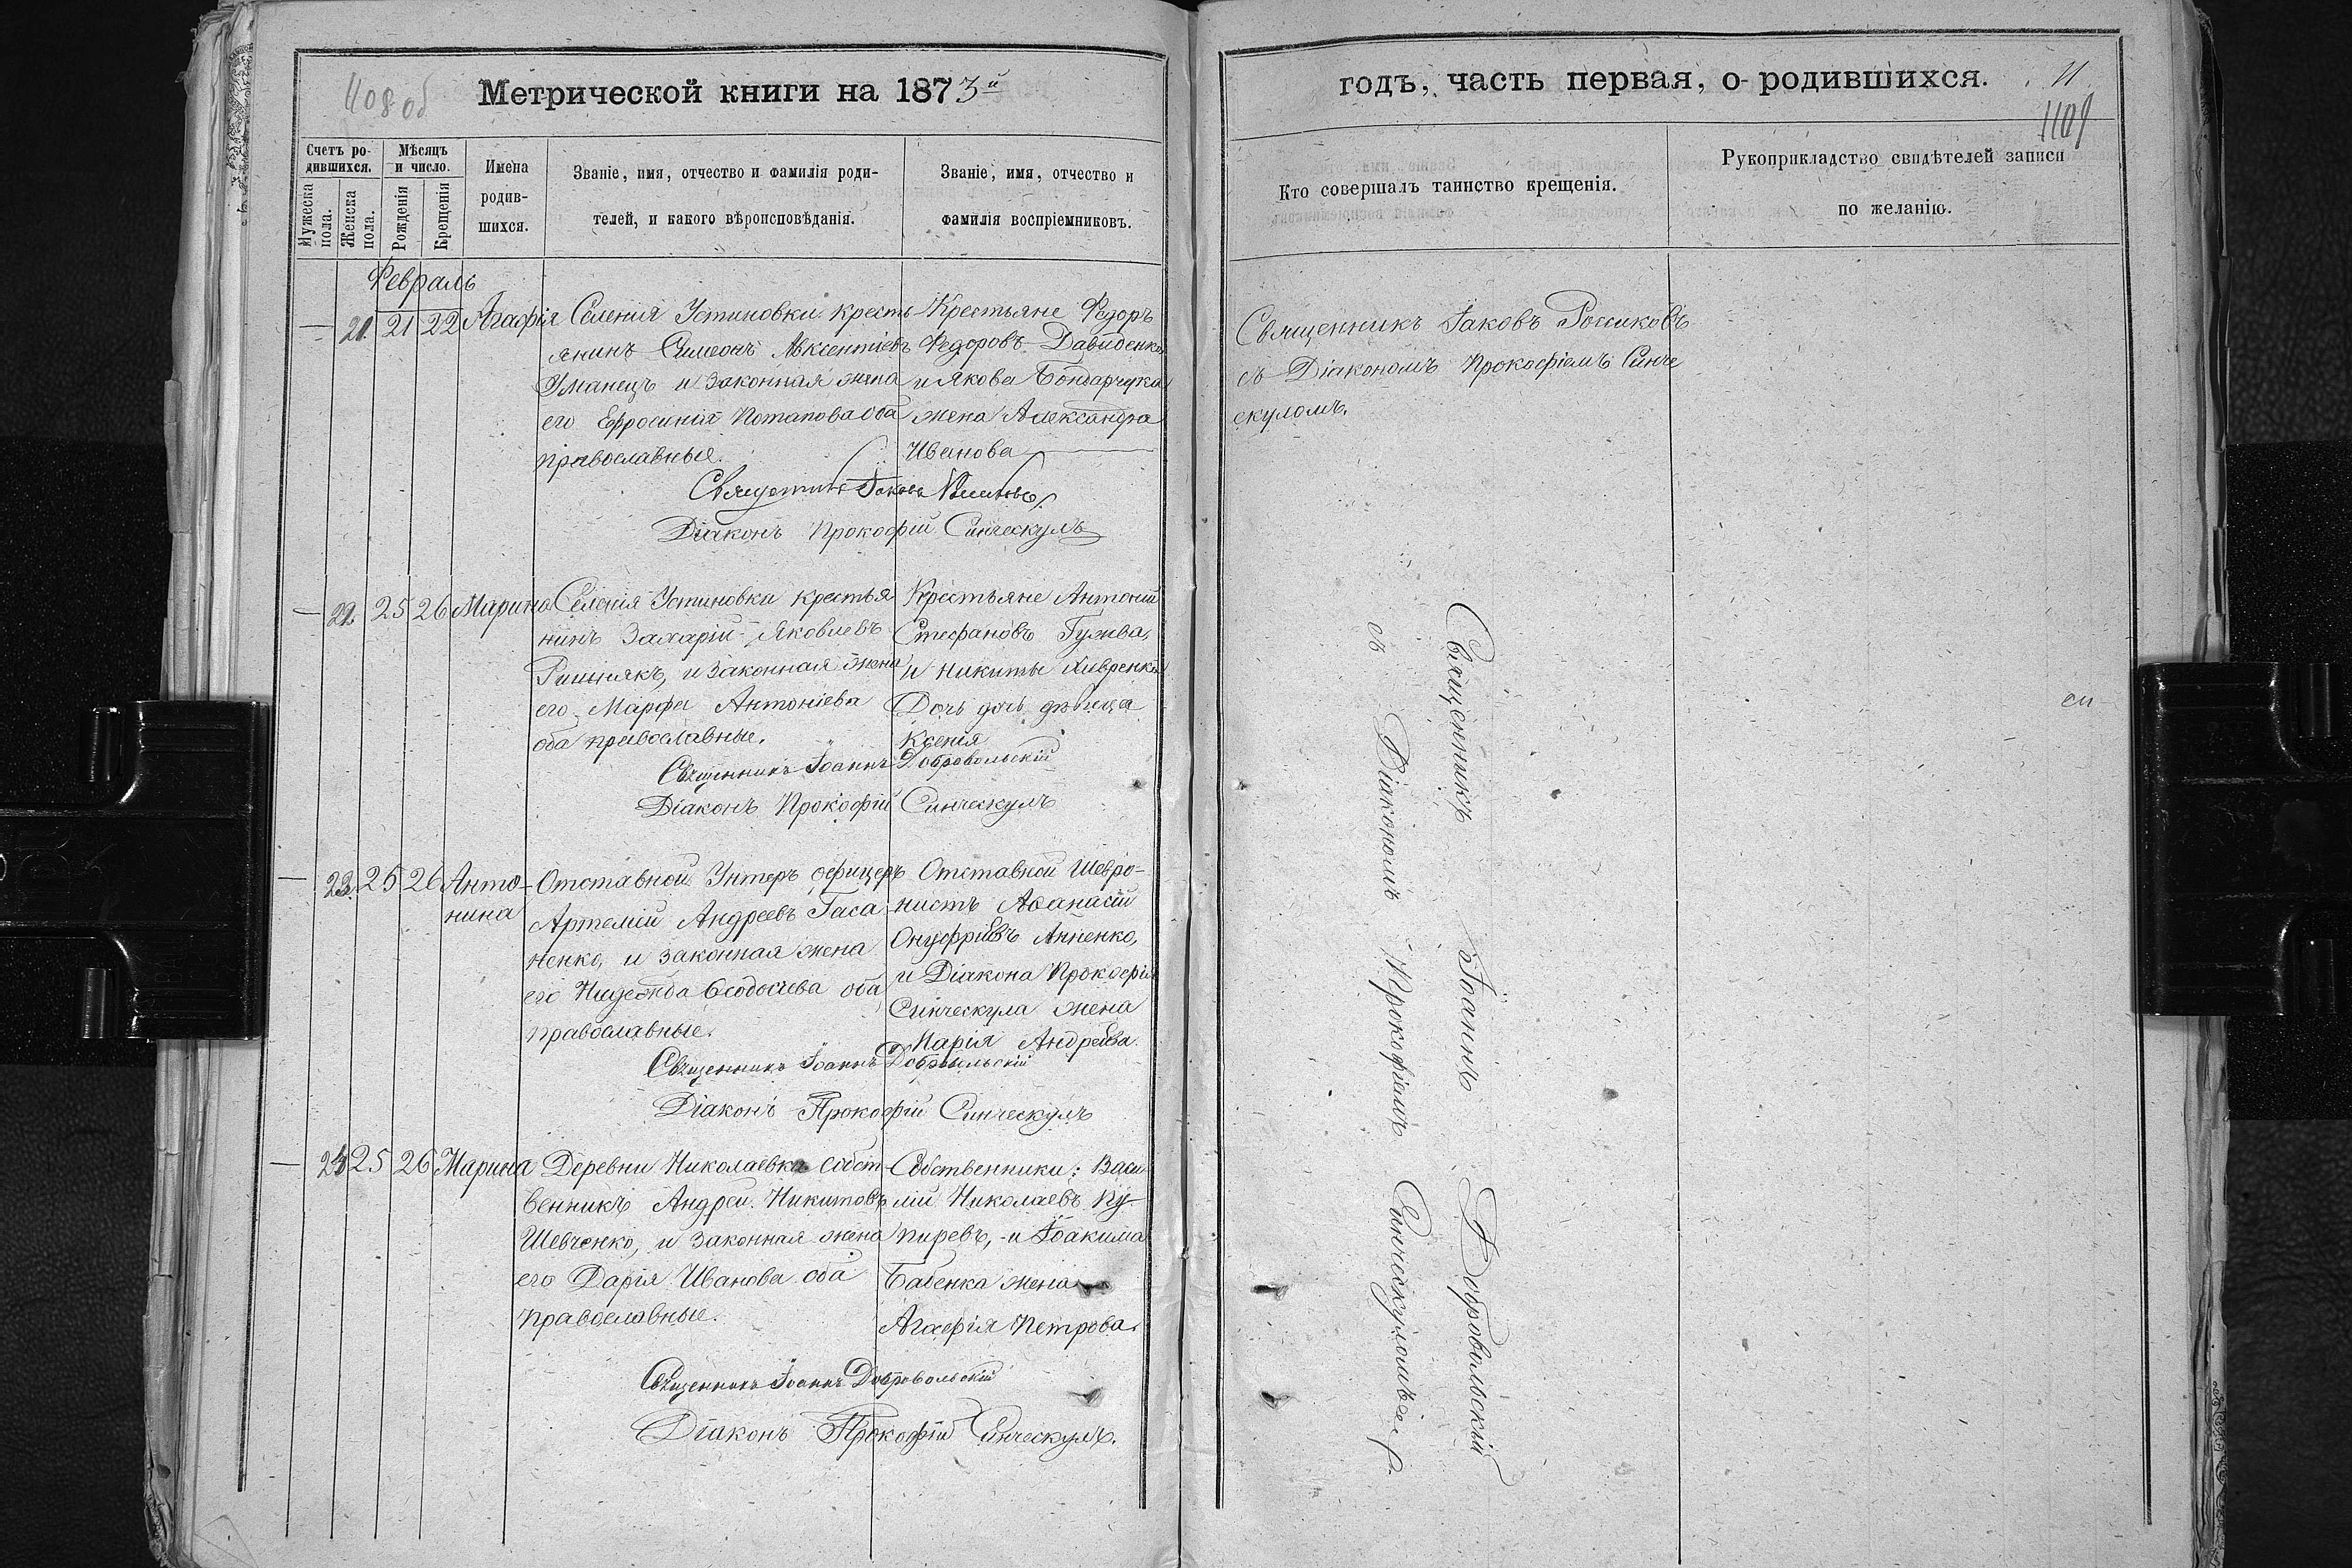 1108 об
Метрической книги на 1873й
Счетъ ро-
дившихся.
Мужеска пола.
Женска пола.
Мѣсяцъ и число.
Рожденія
Крещенія
Имена
родив-
шихся.
Званіе, имя, отчество и фамилія роди-
телей, и какого вѣроисповѣданія.
Званіе, имя, отчество и
фамилія воспріемниковъ.
Февраль
— 21. 21 22 Агафія
Селенія Устиновки кресть
янинъ Симеонъ Авксентіевъ
Уманецъ и законная жена
его Ефросинія Потапова оба
православные.
Крестьяне Федоръ
Федоровъ Давиденко,
и Якова Бондарчука
жена Александра
Иванова
Священникъ Іаковъ
Діаконъ Прокофій Синческулъ
— 22. 25 26 Марина
Селенія Устиновки крестья
нинъ Захарій Яковлевъ
и законная жена
его Марфа Антоніева
оба православные.
Крестьяне Антоній
Стефановъ Гужва,
и Никиты Хивренка
Дочь дочь дѣвица
Ксенія
Священникъ Іоаннъ Добровольскій
Діаконъ Прокофій Синческулъ
— 23. 25 26 Анто-
нина
Отставной Унтеръ офицеръ
Артемій Андреевъ Гаса
ненко, и законная жена
его Надежда Ѳеодосіева оба
православные.
Отставной Шевро-
нистъ Аѳанасій
Онуфріевъ Анненко,
и Діакона Прокофія
Синческула жена
Марія Андреева.
Священникъ Іоаннъ Добровольскій
Діаконъ Прокофій Синческулъ
— 24 25 26 Марина
Деревни Николаевки собст-
венникъ Андрей Никитовъ
Шевченко, и законная жена
его Дарія Иванова оба
православные.
Собственники: Васи
лій Николаевъ Пу-
пиревъ, и Іоакима
Бабенка жена
Агафія Петрова.
Священникъ Іоаннъ Добровольскій
Діаконъ Прокофій Синческулъ.
годъ, часть первая, о родившихся.
11
1109
Кто совершалъ таинство крещенія.
Рукоприкладство свидѣтелей записи
по желанію.
Священникъ Іаковъ Россиковъ
съ Діакономъ Прокофіемъ Синче
скуломъ.
Священникъ Іоаннъ Добровольскій
съ Діакономъ Прокофіемъ Синческуломъ